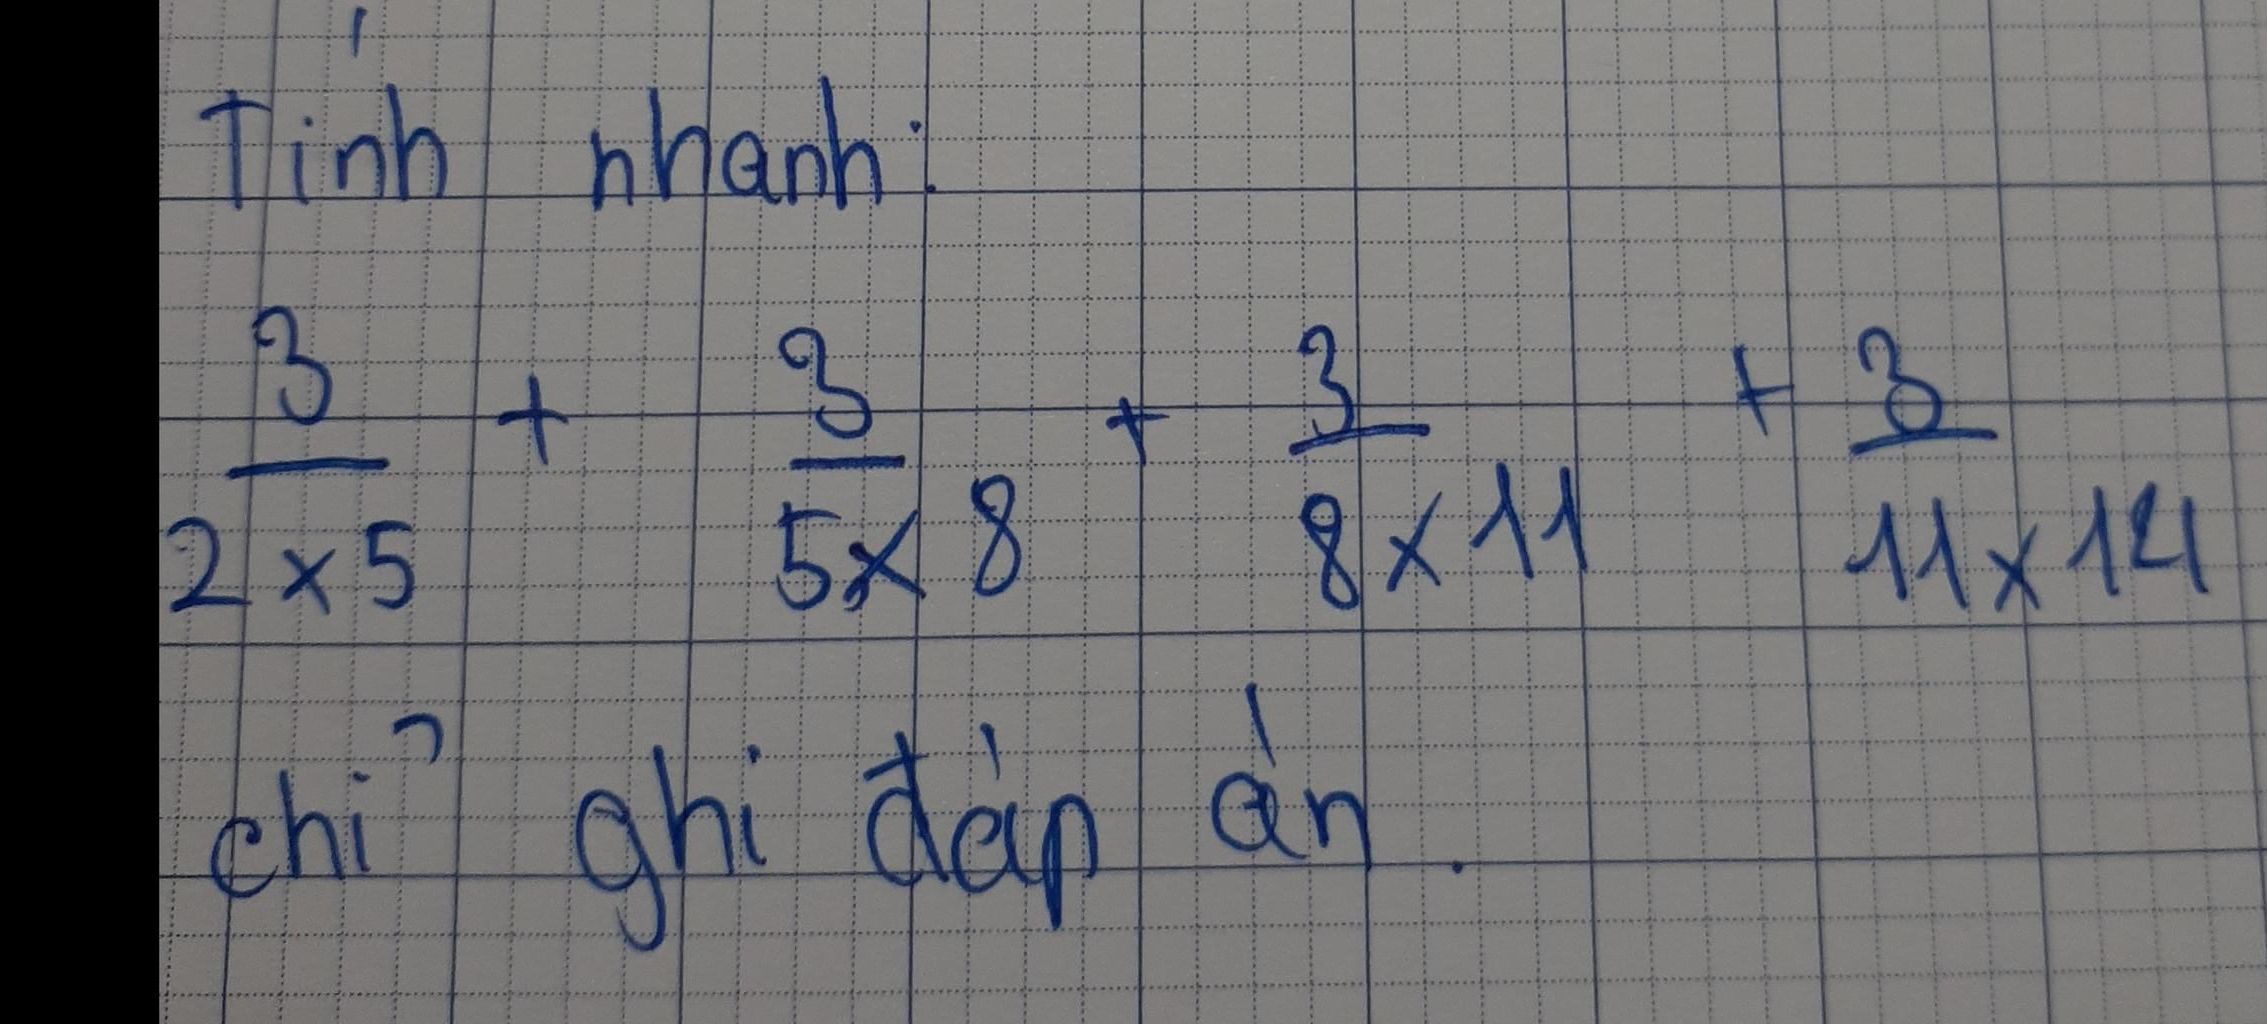 Tính nhanh:
3/2 x 5 + 3/5 x 8 + 3/8 x 11 + 3/11 x 14
chỉ ghi đáp án.